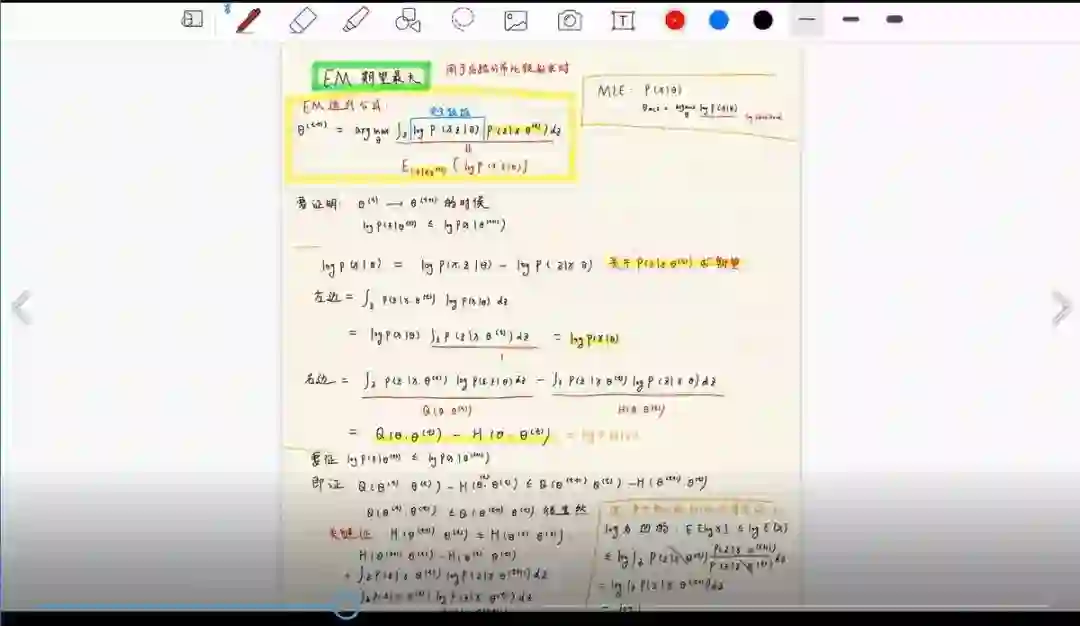 EM 期望最大
MLE: P(x|θ)
θMLE = argmax θ log P(x|θ)
EM 迭代公式:
θ(t+1) = argmax θ ∫z log P(x z|θ) P(z|x θ(t)) dz
E z|x θ(t) [log P(x z|θ)]
要证明: θ(t) → θ(t+1) 的时候
log P(x|θ(t)) ≤ log P(x|θ(t+1))
log P(x|θ) = log P(x, z|θ) - log P(z|x θ) 关于 P(z|x θ(t)) 求期望
左边 = ∫z P(z|x θ(t)) log P(x|θ) dz
= log P(x|θ) ∫z P(z|x θ(t)) dz = log P(x|θ)
1
右边 = ∫z P(z|x θ(t)) log P(x z|θ) dz - ∫z P(z|x θ(t)) log P(z|x θ) dz
Q(θ θ(t)) H(θ θ(t))
= Q(θ, θ(t)) - H(θ, θ(t))
要证 log P(x|θ(t)) ≤ log P(x|θ(t+1))
即证 Q(θ(t) θ(t)) - H(θ(t) θ(t)) ≤ Q(θ(t+1) θ(t)) - H(θ(t+1) θ(t))
Q(θ(t) θ(t)) ≤ Q(θ(t+1) θ(t))
H(θ(t+1) θ(t)) ≤ H(θ(t) θ(t))
H(θ(t+1) θ(t)) - H(θ(t) θ(t))
= ∫z P(z|x θ(t)) log P(z|x θ(t+1)) dz
∫z P(z|x θ(t)) log P(z|x θ(t)) dz
E[log x] ≤ log E(x)
≤ log ∫z P(z|x θ(t)) P(z|x θ(t+1)) / P(z|x θ(t)) dz
= log ∫z P(z|x θ(t+1)) dz
= log 1